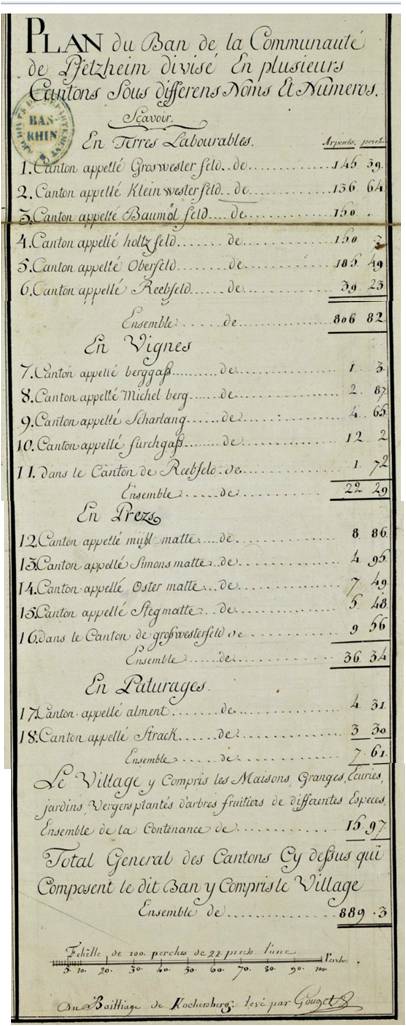 PLAN du Ban de la Communauté
de Pfetzheim divisé En plusieurs
Cantons Sous differens Noms Et Numeros.
Sçavoir.
ARCHIVES DU DÉPARTEMENT
BAS-
RHIN
En Terres Labourables. Arpents. perch.
1. Canton appellé Groswester feld...de... 145 39.
2. Canton appellé Klein wester feld...de... 136 64
3. Canton appellé Baumöl feld...de... 150 .
4. Canton appellé holtz feld...de... 150 3
5. Canton appellé Oberfeld...de... 185 49
6. Canton appellé Reebfeld...de... 39 23
Ensemble...de... 806 82
En Vignes
7. Canton appellé berggaß...de... 1 3
8. Canton appellé Michel berg...de... 2 87
9. Canton appellé Scharlang...de... 4 65
10. Canton appellé furchgaß...de... 12 2
11. dans le Canton de Reebfeld de... 1 72
Ensemble...de... 22 29
En Prezs
12. Canton appellé mühl matte...de... 8 86
13. Canton appellé Simons matte...de... 4 95
14. Canton appellé Oster matte...de... 7 49
15. Canton appellé Stegmatte...de... 5 48
16. dans le Canton de großwesterfeld de... 9 56
Ensemble...de... 36 34
En Paturages.
17. Canton appellé alment...de... 4 31
18. Canton appellé Strack...de... 3 30
Ensemble...de... 7 61
Le Village y Compris les Maisons, Granges, Ecuries,
jardins, Vergers plantés d'arbres fruitiers de differentes Especes,
Ensemble de la Contenance de... 15 97
Total General des Cantons Cy dessus qui
Composent le dit Ban y Compris le Village
Ensemble de... 889 . 3
Echelle de 100. perches de 22. pieds l'une
5. 10. 20. 30. 40. 50. 60. 70. 80. 90. 100. Perch.
Du Bailliage de Kochersberg: levé par Gouget